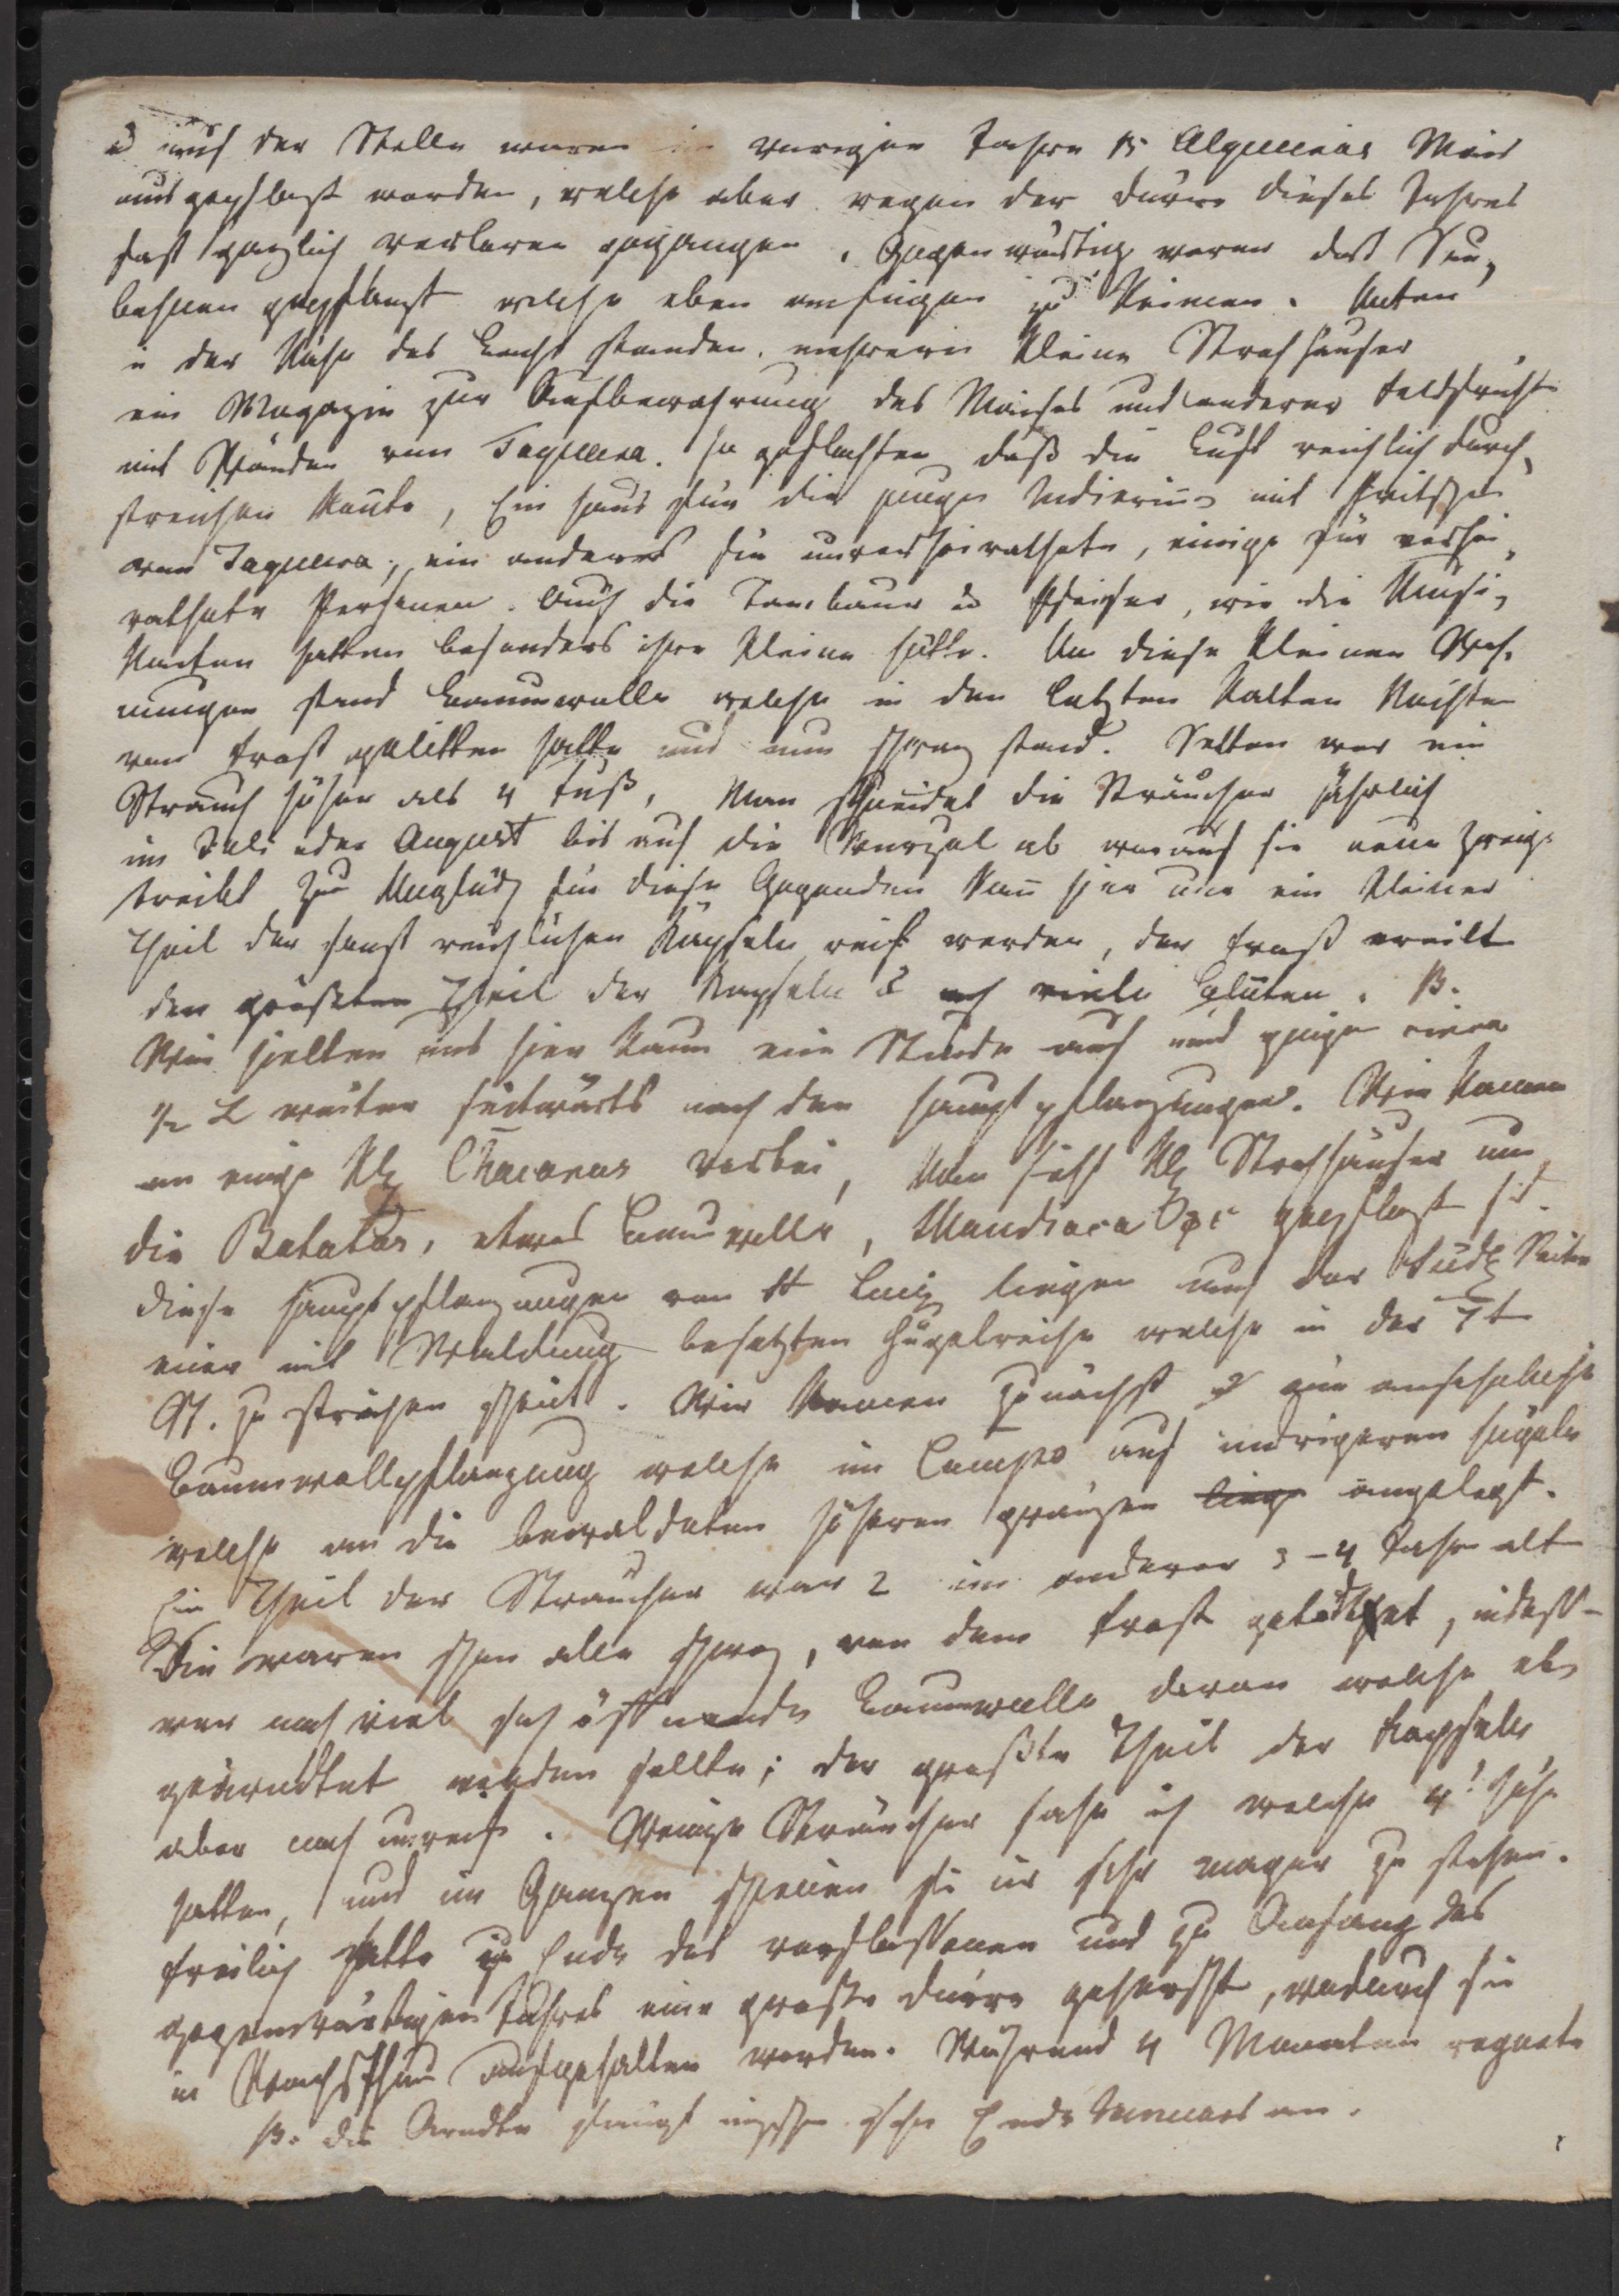 u auf der Stelle waren im vorigen Jahre 15 Alqueiras Mais
ausgepflanzt worden, welche aber wegen der Dürre dieses Jahres
fast gänzlich verloren gegangen. Gegenwärtig waren dort Sau¬
bohnen gepflanzt welche eben anfingen zu keimen. Unten
in der Nähe des Bachs standen mehrere kleine Strohhäuser
ein Magazin zur Aufbewahrung des Maises und anderer Feldfrüchte
mit Wänden von Taquara so geflochten daß die Luft reichlich durch¬
streichen konte, Ein Haus für die jungen Indierinn mit Pritschen
von Taquara, ein anderes für unverheirathete, einige für verhei¬
rathete Personen. Auch die Tambaur u Pfeifer, wie die Musi¬
kanten hatten besonders ihre kleine Hütte. Um diese kleinen Woh¬
nungen stand Baumwolle welche in den letzten kalten Nächten
vom Frost gelitten hatte und nun schwarz stand. Selten war ein
Strauch höher als 4 Fuß, Man schneidet die Sträucher jährlich
im Juli oder August bis auf die Wurzel ab worauf sie neue Zweige
treibt Zum Unglück für diese Gegenden kan hier nur ein kleiner
Theil der sonst reichlichen Kapseln reif werden, der Frost ereilt
den größten Theil der Kapseln u noch viele Blüten. B.
Wir hielten uns hier kaum eine Stunde auf und gingen eine
1/2 L weiter südwärts nach den Hauptpflanzungen. Wir kamen
an einige kl Chacaras vorbei, Man sieht kl Strohhäuser um
die Batatas, etwas Baumwolle, Mandioca gepflanzt sd.
diese Hauptpflanzungen von St Luiz liegen nach der Südl Seite
einer mit Waldung besetzten Hügelreihe welche in der
St. zu streichen scheint. Wir kamen zunächst eine ansehnliche
Baumwollpflanzung welche im Campo auf niedrigeren Hügeln
welche an die bewaldeten höheren gränzen liegt angelegt.
Ein Theil der Sträucher war 2 ein anderer 3–4 Jahr alt
Sie waren schon alle schwarz, von dem Frost getödtet, indeß
war noch viel sich öffnende Baumwolle daran welche eben
geärndtet werden sollte; der größte Theil der Kapseln
aber noch unreif. Wenige Sträucher sahe ich welche 4' Höhe
hatten, und im Ganzen schienen sie mir sehr mager zu stehen.
Freilich hatte zu Ende des verflossenen und zu Anfang des
gegenwärtigen Jahres eine große Dürre geherrscht, wodurch sie
in Wachsthum aufgehalten worden. Während 4 Monaten regnete
B. die Arndte fängt schon Ende Januars an.